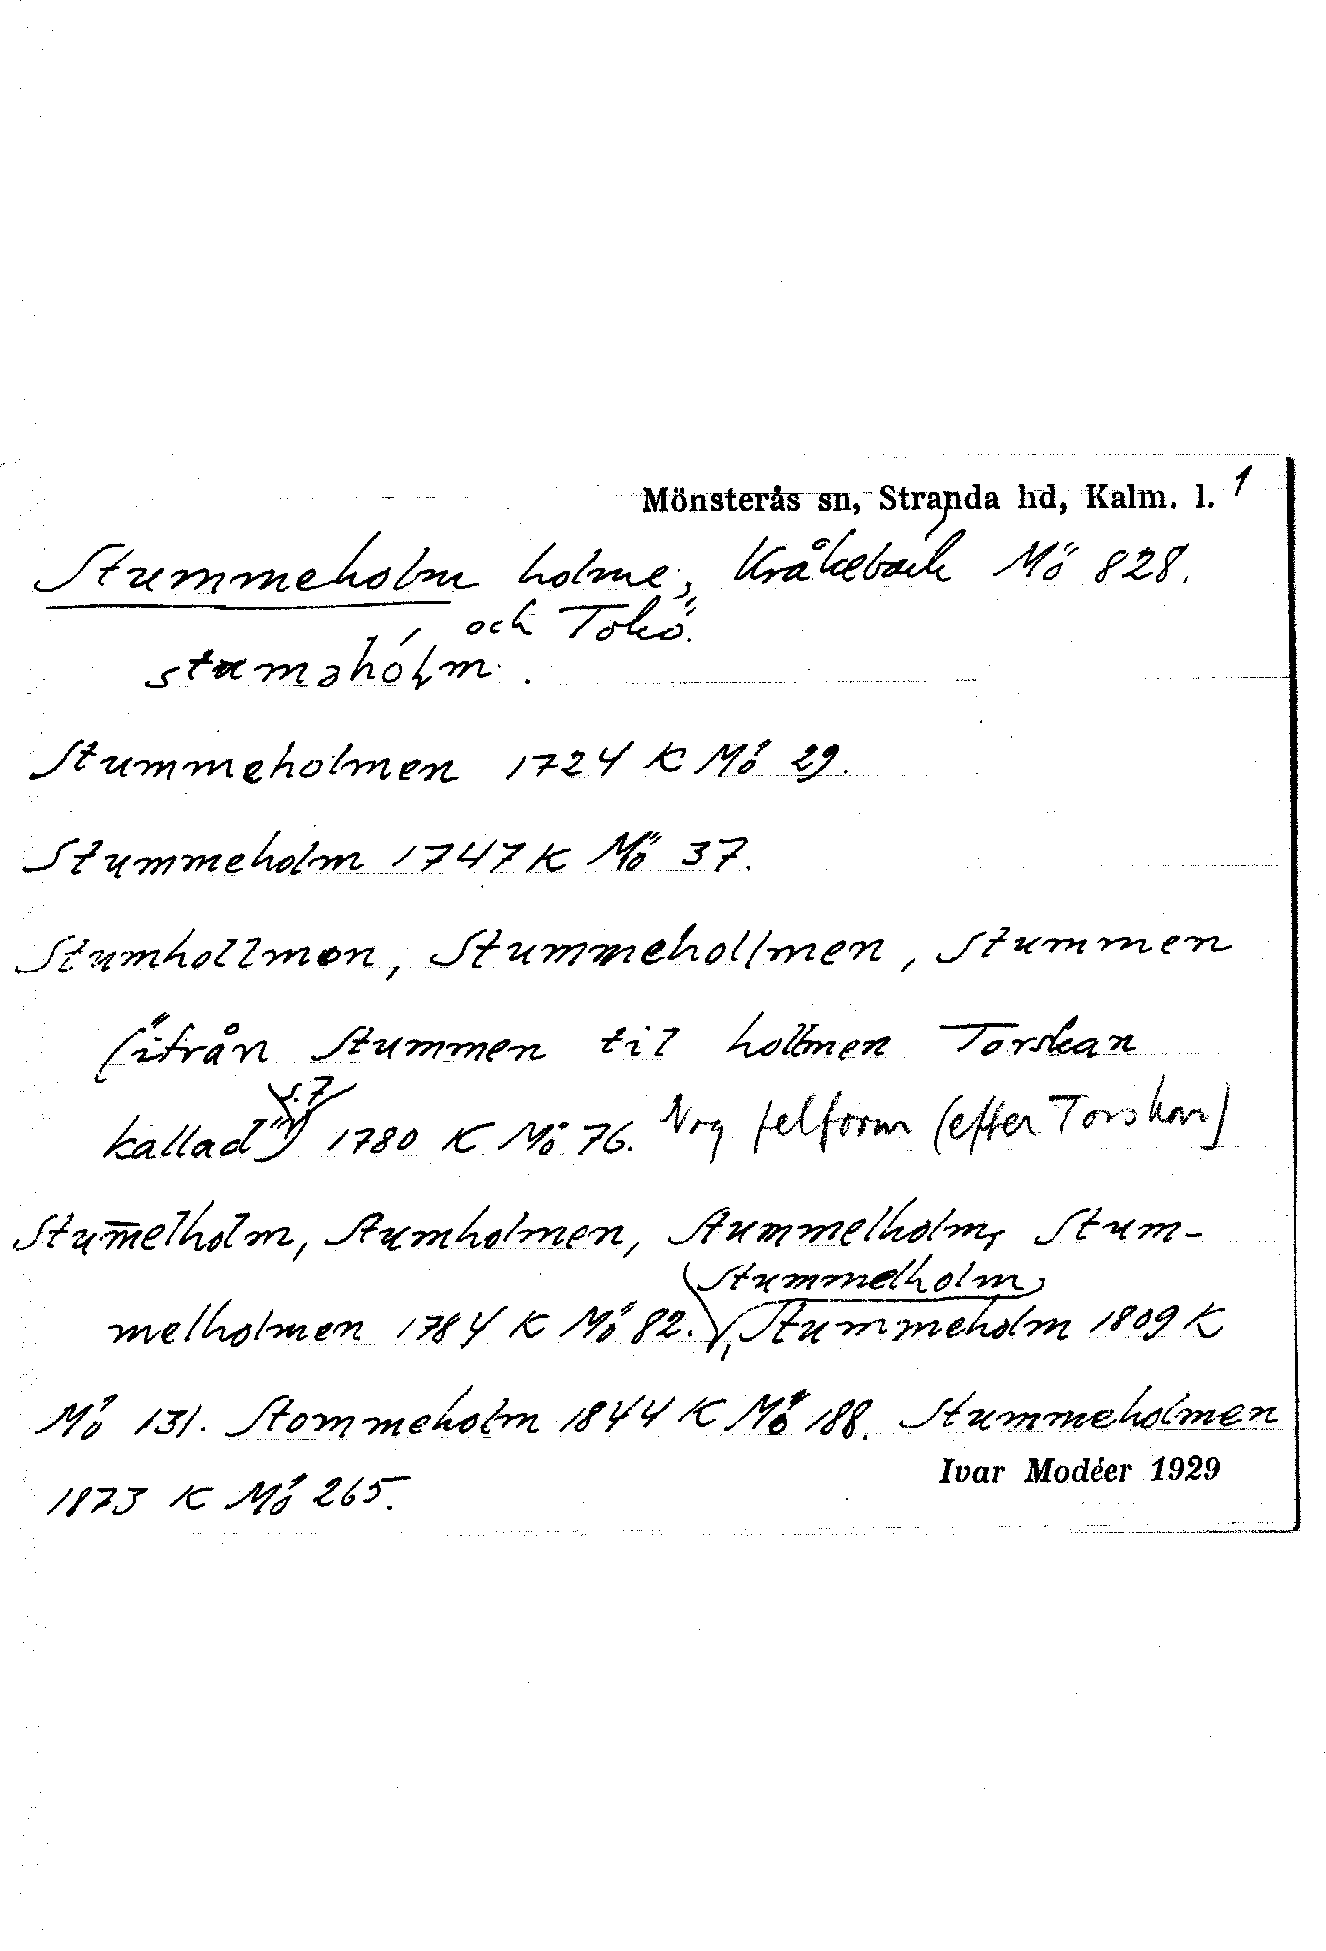 Mönsterås sn, Stranda hd, Kalm. l. 1
Stummeholm holme, Kråkebäck Mö 828.
och Tokö.
stuməhól̥m.
Stummeholmen 1724 K Mö 29.
Stummeholm 1747 K Mö 37.
Stumhollmen, Stummehollmen, Stummen
("ifrån Stummen til hollmen Torskan
s. 7
kallad") 1780 K Mö 76. Nog felform (efter Torskan)
Stum̅elholm, Stumholmen, Stummelholm, Stum-
Stummelholm,
melholmen 1784 K Mö 82. Stummeholm 1809 K
Mö 131. Stommeholm 1844 K Mö 188. Stummeholmen
Ivar Modéer 1929
1873 K Mö 265.